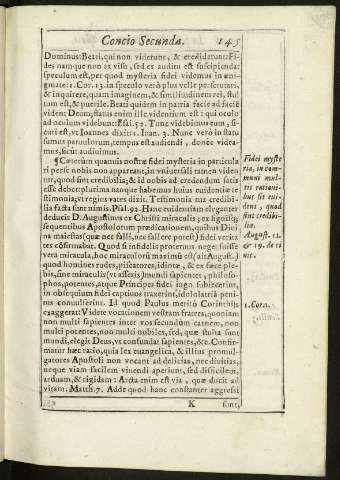 Concio Secunda. 145
Dominus: Beati, qui non viderunt, & crediderunt: Fi-
des namque non ex visu, sed ex auditu est suscipienda:
speculum est, per quod mysteria fidei videmus in ænig-
mate: 1. Cor. 13. in speculo verò plus velle perscrutari,
& inquirere, quàm imaginem, & similitudinem rei, stul-
tum est, & puerile. Beati quidem in patria facie ad faciē
vident Deum; status enim ille videntium est: quia oculo
ad oculum videbunt: Esai. 52. Tunc videbimus eum, si-
cuti est, vt Ioannes dixit: 1. Ioan. 3. Nunc verò in statu
sumus paruulorum, tempus est audiendi, donec videa-
mus, sicut audiuimus.
¶ Cæterùm quamuis nostræ fidei mysteria in particula
ri perse nobis non appareant, in vniuersali tamen viden
tur, quòd sint credibilia; & id nobis ad credendum satis
esse debet: plurima nanque habemus huius euidentiæ te
stimonia, vt regius vates dixit: Testimonia tua credibi-
lia facta sunt nimis. Psal. 92. Hanc euidentiam eleganter
deducit D. Augustinus ex Christi miraculis, ex signisq;
sequentibus Apostolorum prædicationem, quibus Diui
na maiestas (quæ nec falli, nec fallere potest) fidei verita
tem cōfirmabat. Quod si infidelis proteruus neget fuisse
vera miracula, hoc miraculorū maximū est (ait August.)
quòd homines rudes, piscatores, idiotæ, & ex fæce ple-
bis, sine miraculis (vt asseris) mundi sapientes, philoso-
phos, potentes, atque Principes fidei iugo subiecerint,
in obsequium fidei captiuos traxerint, idololatriā peni-
tus conuulserint. Id quod Paulus meritò Corinthijs
exaggerat: Videte vocationem vestram fratres, quoniam
non multi sapientes inter vos secundum carnem, non
multi potentes, non multi nobiles, sed, quæ stulta sunt
mundi, elegit Deus, vt confundat sapientes, &c. Confir-
matur hæc ratio, quia lex euangelica, & illius promul-
gatores Apostoli non vocant ad delicias, nec diuitias,
neque viam facilem viuendi aperiunt, sed difficilem,
arduam, & rigidam: Arcta enim est via, quæ ducit ad
vitam. Matth. 7. Adde quod hanc constanter aggressi
K sunt,
Fidei myste
ria, in com-
muni mul-
tis rationi-
bus sit eui-
dens, quod
sint credibi-
lia.
August. 22.
& 19. de ci
uit.
1. Cor. 1.